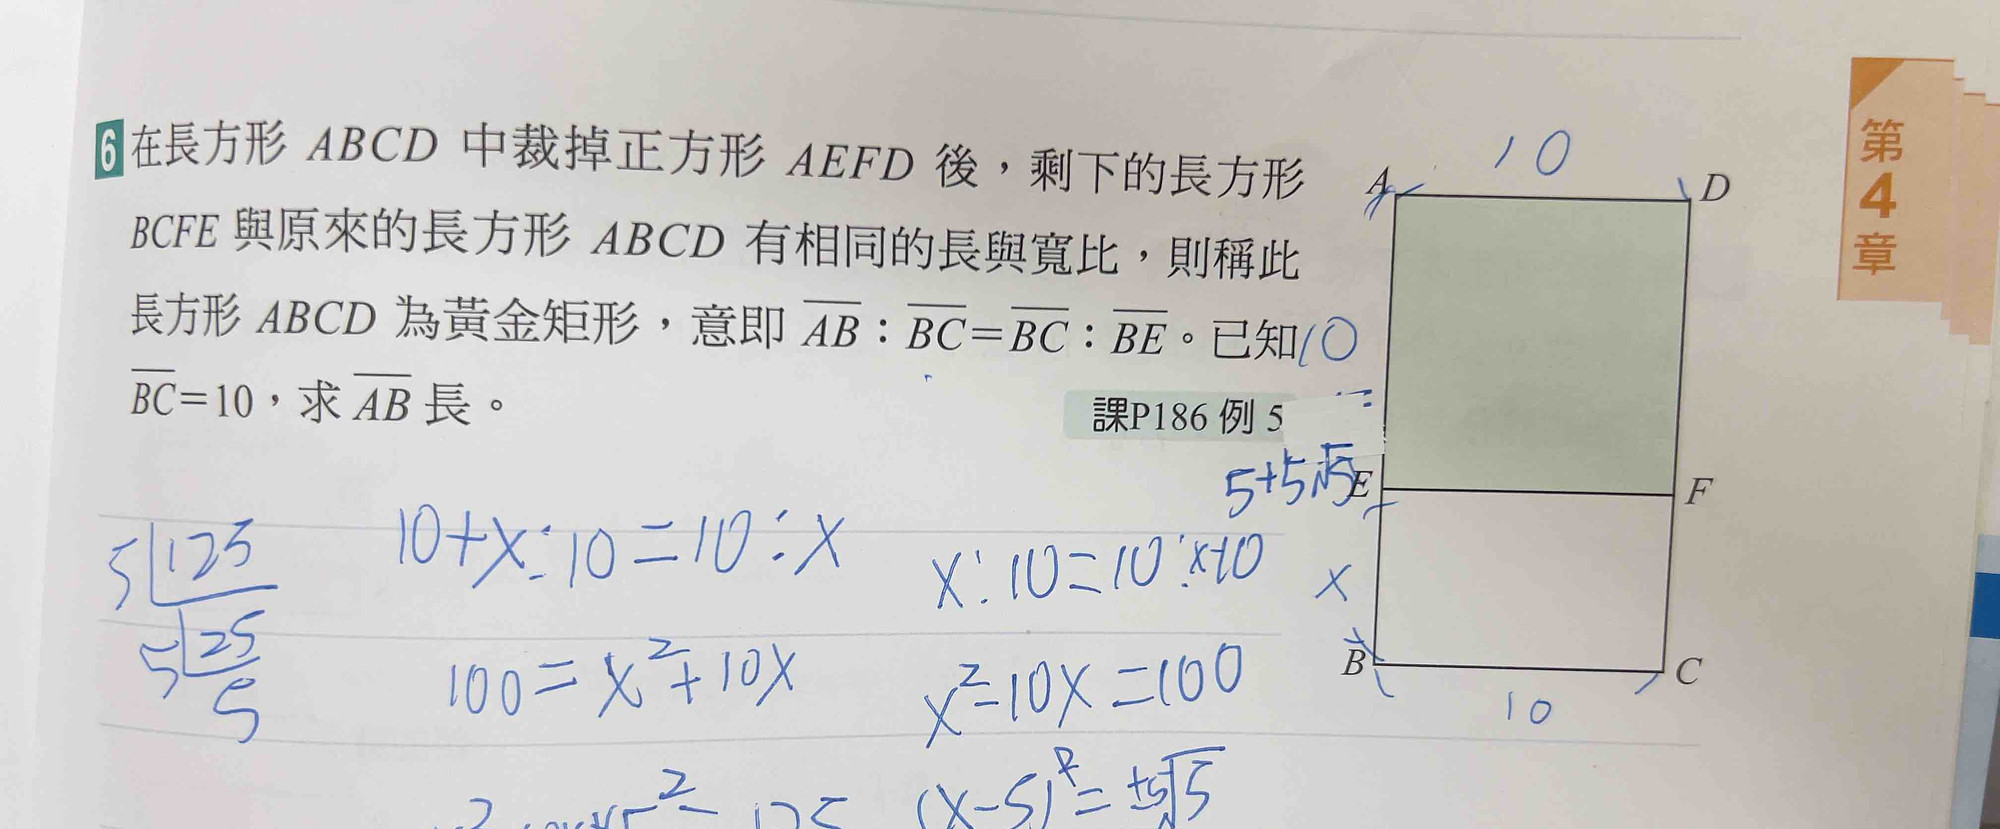 第4章
6 在長方形 ABCD 中裁掉正方形 AEFD 後，剩下的長方形
BCFE 與原來的長方形 ABCD 有相同的長與寬比，則稱此
長方形 ABCD 為黃金矩形，意即 AB：BC=BC：BE。已知
BC=10，求 AB 長。
課P186 例 5
10
A
D
10
5+5√5
E
F
x
B
C
10
5 125
5 25
5
10+x:10=10:x
100=x²+10x
x:10=10:x-10
x²-10x=100
(x-5)²=±5√5